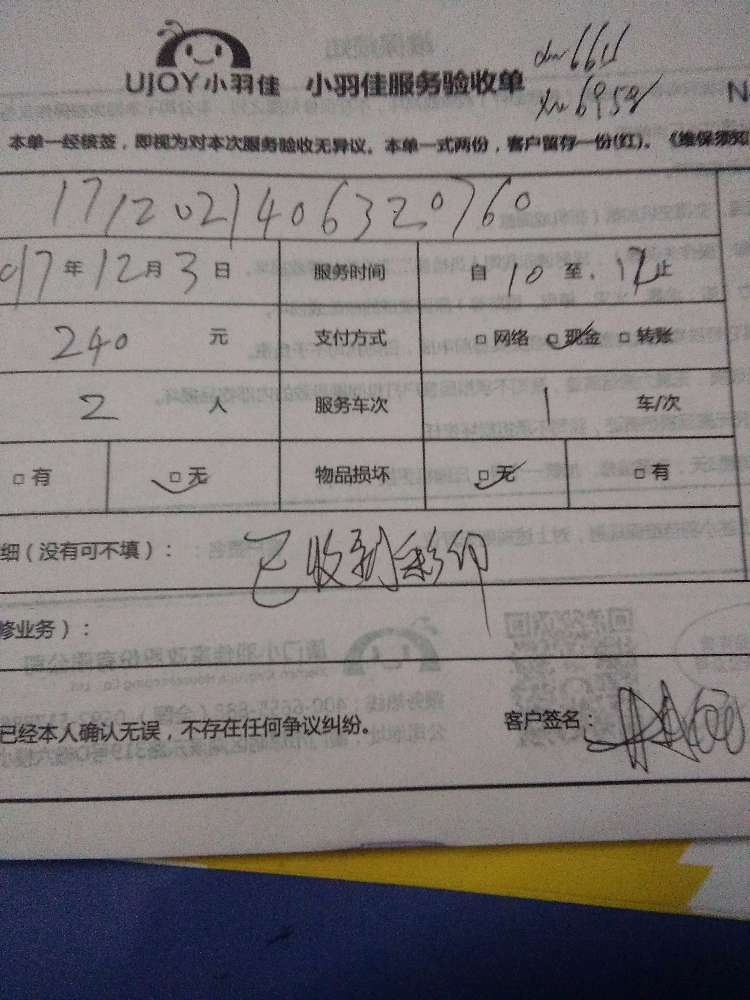 UJOY小羽佳 小羽佳服务验收单
本单一经核签，即视为对本次服务验收无异议。本单一式两份，客户留存一份(红)。《维保须知
1712021406320760
017年12月3日 服务时间 自10至.12止
240元 支付方式 □网络 □现金 □转账
2人 服务车次 1车/次
□有 □无 物品损坏 □无 □有
细（没有可不填）： 已收到彩印
修业务）：
已经本人确认无误，不存在任何争议纠纷。 客户签名：